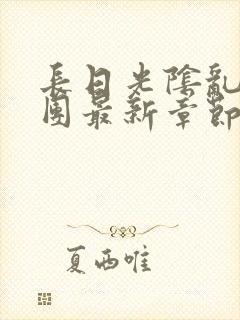 長日光陰亂
團最新章節
夏西唯